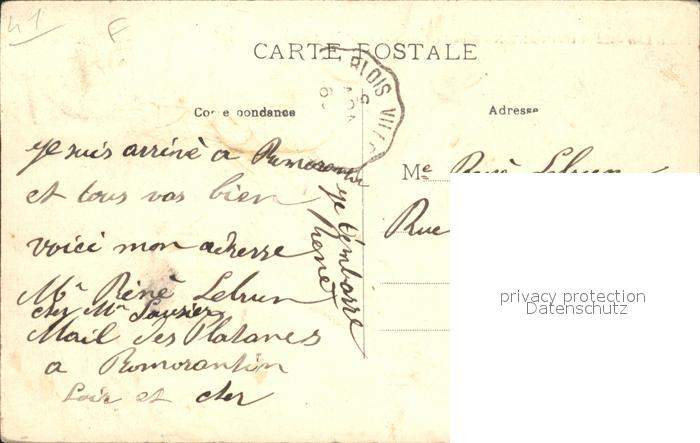 41
F
CARTE POSTALE
BLOIS VI
Correspondance
Adresse
je suis arrivé a Romorantin
et tous vas bien
voici mon adresse
Mr Réné Lebrun
chez Mr
Mail des Platanes
a Romorantin
Loir et cher
je t'embrasse
René
Me René Lebrun
Rue
privacy protection
Datenschutz